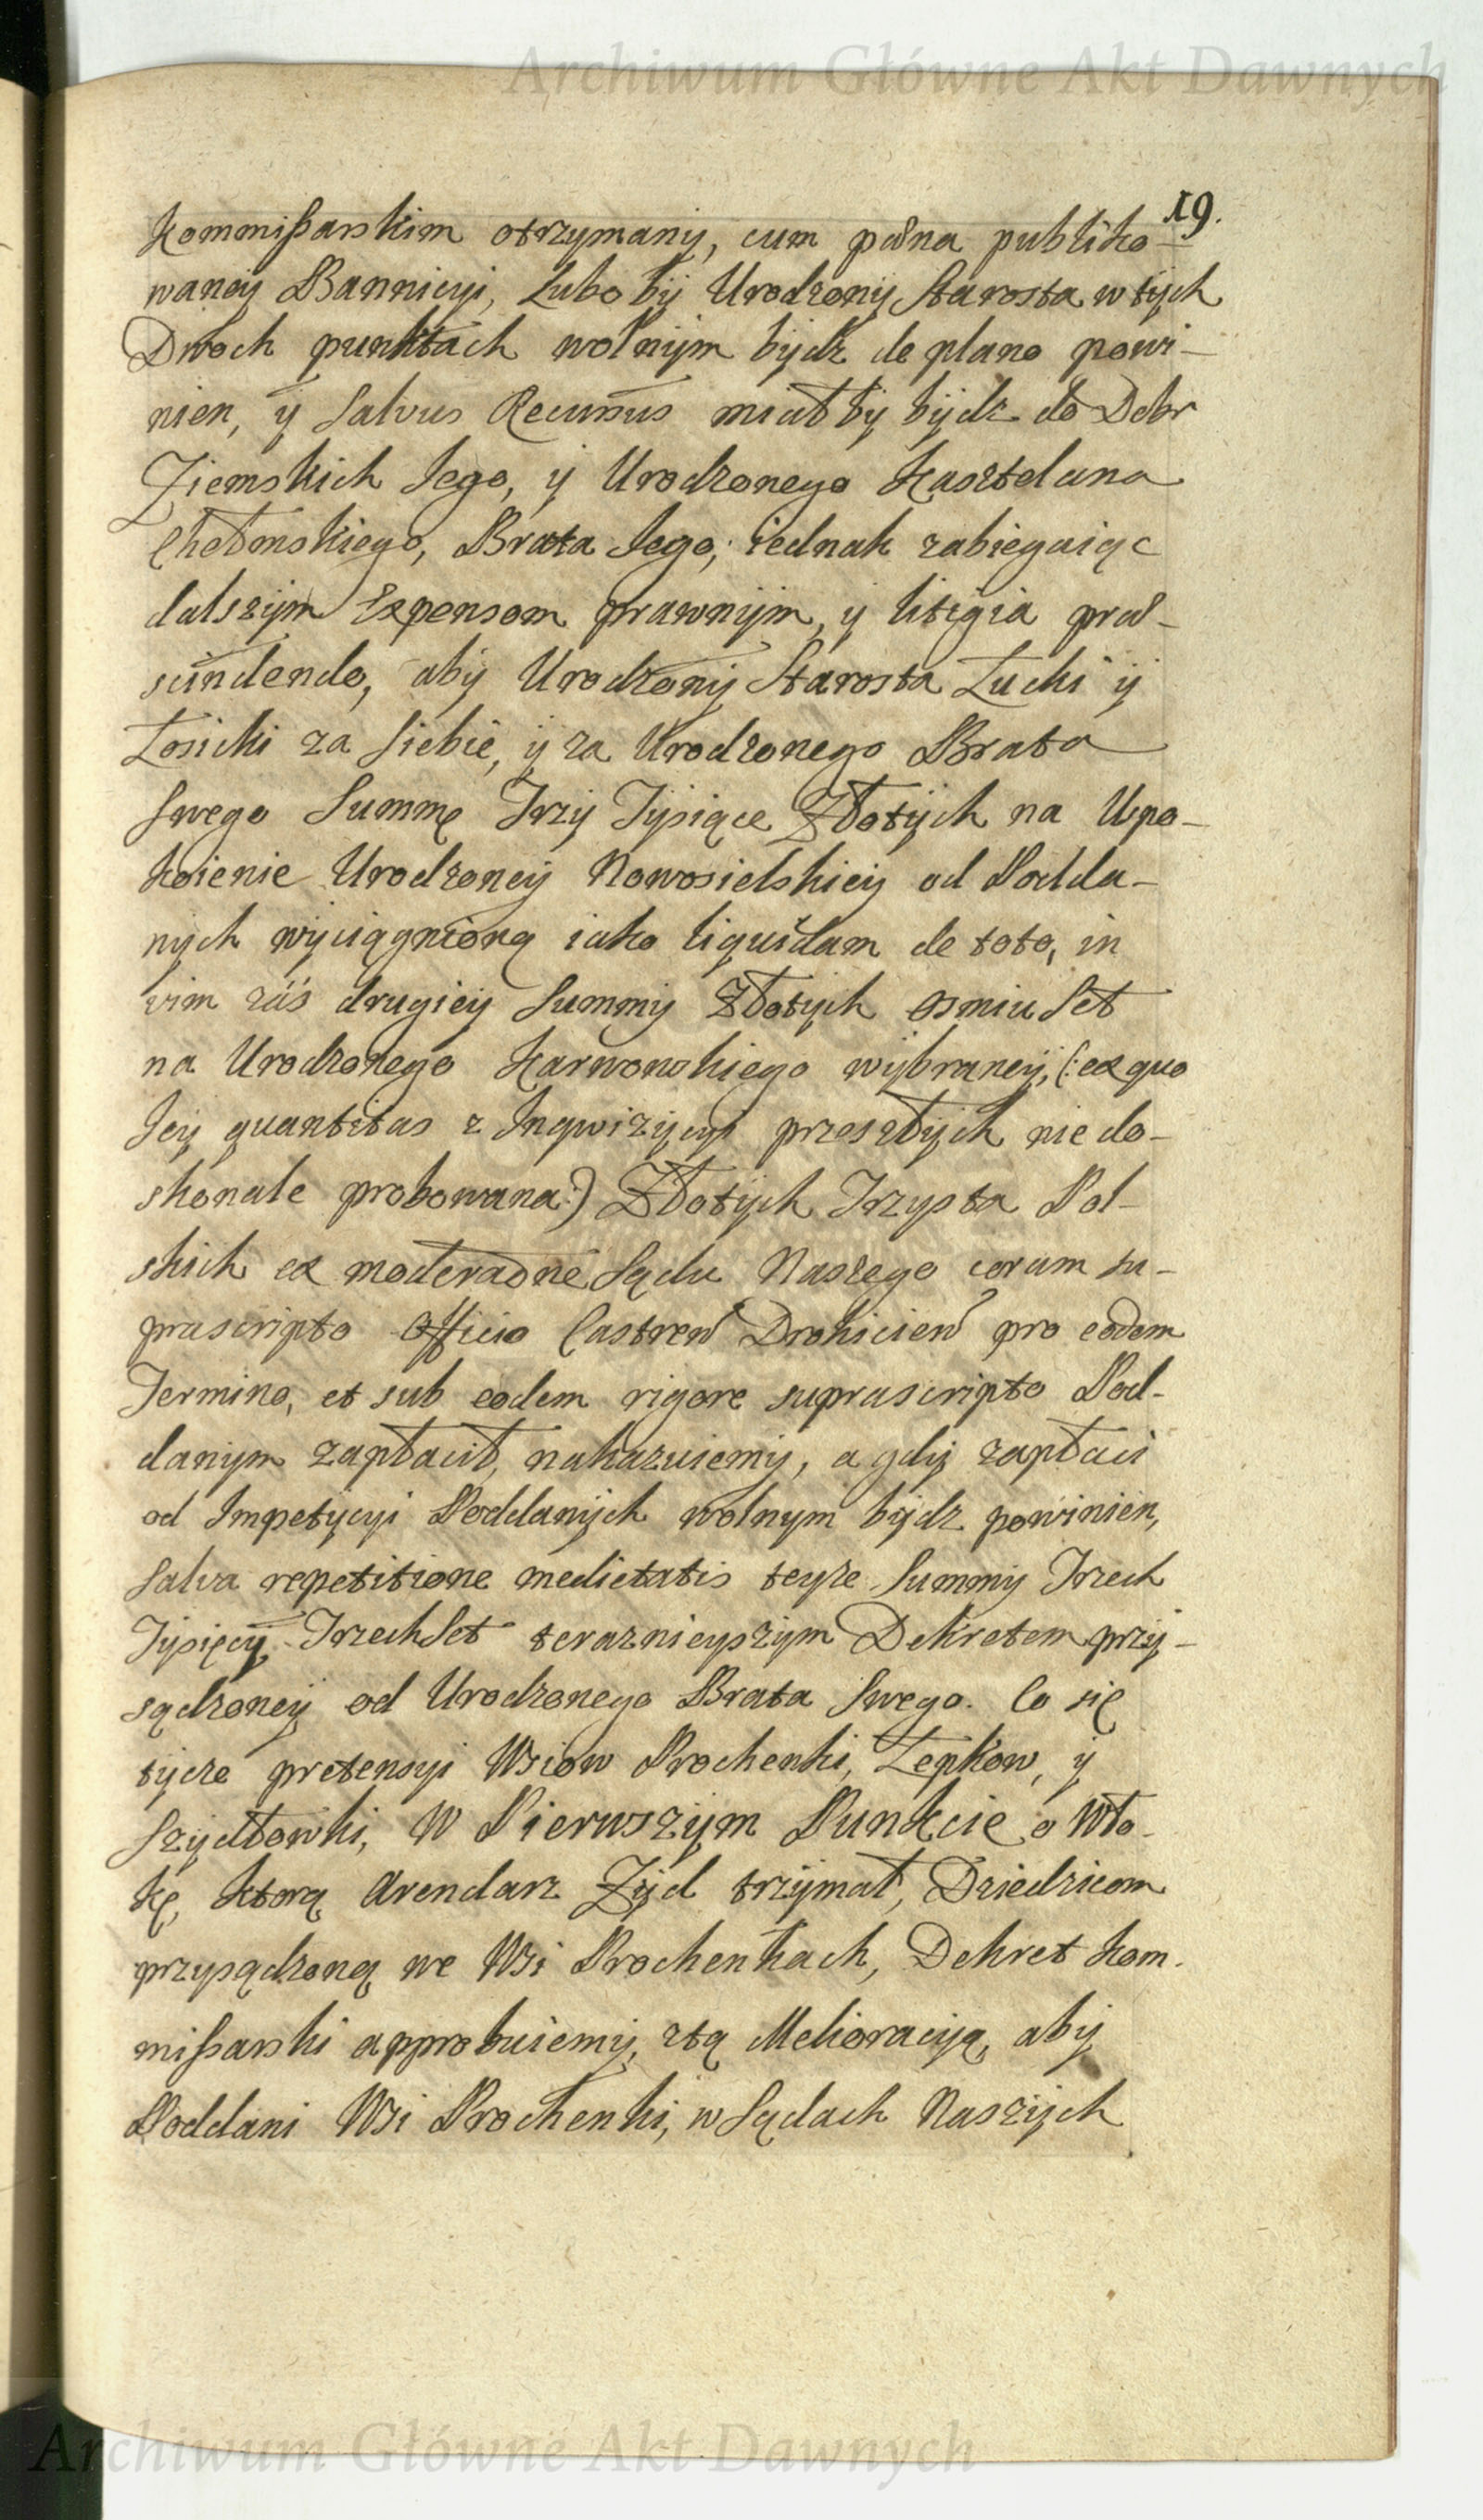 Archiwum Główne Akt Dawnych
19.
Kommißarskim otrzymany, cum pœna publiko-
waney Bannicyi, Lubo by Urodzony Starosta w tych
Dwoch punktach wolnym bydz de plano powi-
nien, y Salvus Recursus miałby bydz do Dobr
Ziemskich Jego, y Urodzonego Kasztelana
Chełmskiego, Brata Jego; iednak zabiegaiąc
dalszym Expensom prawnym, y litigia præ-
scindendo, aby Urodzony Starosta Łucki y
Łosicki za Siebie, y za Urodzonego Brata
Swego Summę Trzy Tysiące Złotych na Upo-
koienie Urodzoney Nowosielskiey od Podda-
nych wyciągnioną iako liquidam de toto, in
vim zaś drugiey Summy Złotych osmiu Set
na Urodzonego Karwowskiego wybraney, (: ex quo
Jey quantitas z Inqwizycyi przeszłych nie do-
skonale probowana :) Złotych Trzysta Pol-
skich ex moderaõne Sądu Naszego coram su-
prascripto Officio Castreń Drohicień pro eodem
Termino, et sub eodem rigore suprascripto Pod-
danym zapłacił, nakazuiemy, a gdy zapłaci
od Impetycyi Poddanych wolnym bydz powinien,
Salva repetitione medietatis teyże Summy Trzech
Tysięcy Trzech Set teraznieyszym Dekretem przy-
sądzoney od Urodzonego Brata Swego. Co się
tycze pretensyi Wsiow Prochenki, Łepkow, y
Szydłowki, W Pierwszym Punkcie o Wło-
kę, ktorą Arendarz Zyd trzymał, Dziedzicom
przysądzoną we Wsi Prochenkach, Dekret Kom-
mißarski approbuiemy, ztą Melioracyą, aby
Poddani Wsi Prochenki, w Sądach Naszych
Archiwum Główne Akt Dawnych